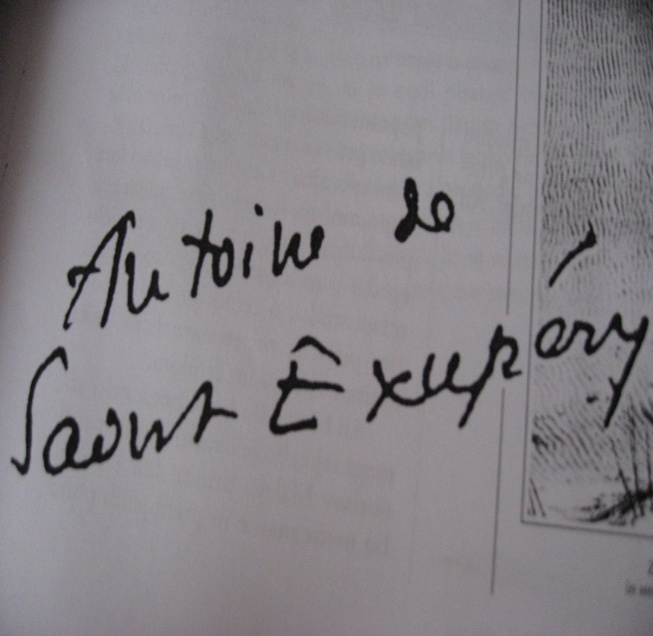 Antoine de
Saint Exupéry